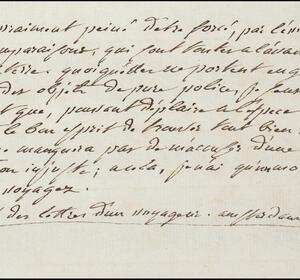 vraiment peiné d'être forcé, par l'ém
comparaisons, qui sont toutes à l'avan
quoiqu'elles ne portent
des objets de pure police, je sens
que, pouvant déplaire à l'espece
le bon esprit de trouver tout bien
manquera pas de m'accuser d'une
injuste; à cela, je n'ai qu'un mo
voyagez.
des lettres d'un voyageur. amsterdam